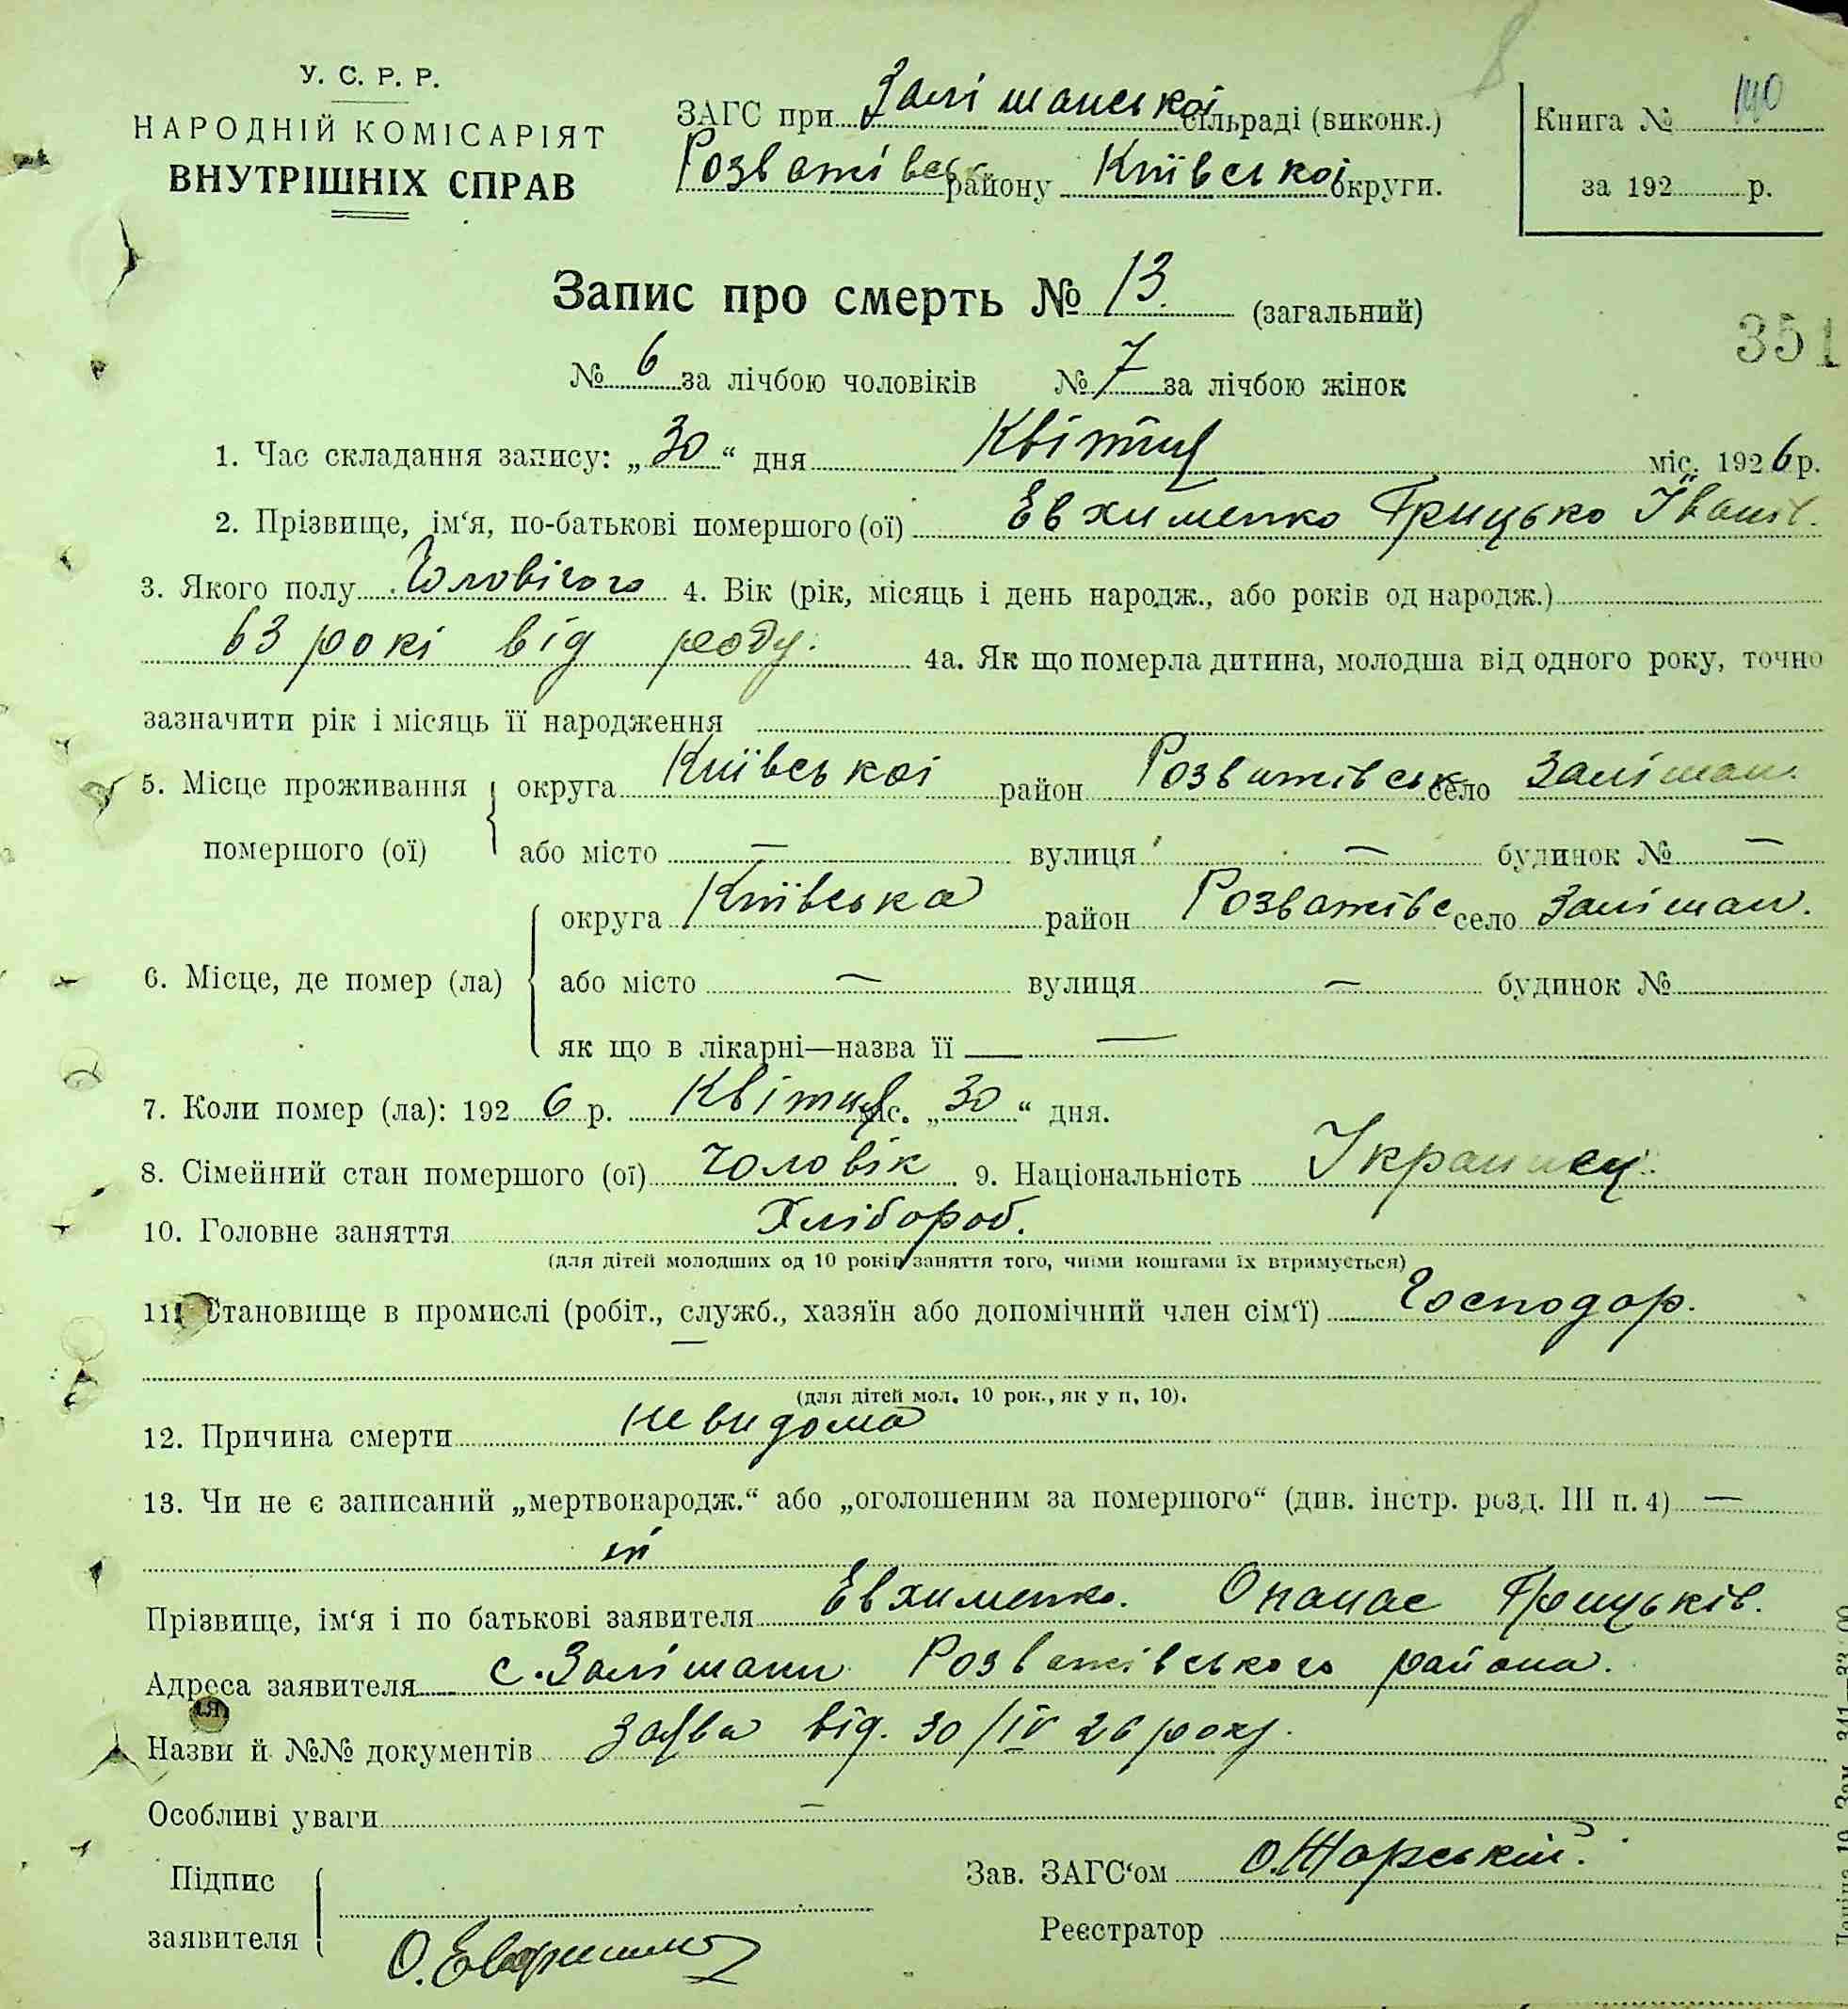 У. С. Р. Р.
НАРОДНІЙ КОМІСАРІЯТ
ВНУТРІШНІХ СПРАВ
ЗАГС при Залішанської сільраді (виконк.)
Розважівськ району Київської округи.
Книга № 140
за 192 р.
Запис про смерть № 13. (загальний)
351
№ 6 за лічбою чоловіків № 7 за лічбою жінок
1. Час складання запису: „30“ дня Квітня міс. 1926 р.
2. Прізвище, ім‘я, по-батькові помершого (ої) Евхименко Грицько Іванів.
3. Якого полу Чоловічого 4. Вік (рік, місяць і день народж., або років од народж.)
63 рокі від роду. 4а. Як що померла дитина, молодша від одного року, точно
зазначити рік і місяць її народження
5. Місце проживання помершого (ої) округа Київської район Розважівськ село Залішан.
або місто — вулиця — будинок № —
6. Місце, де помер (ла) округа Київська район Розважівс село Залішан.
або місто — вулиця — будинок №
як що в лікарні—назва її —
7. Коли помер (ла): 1926 р. Квітня міс. „30“ дня.
8. Сімейний стан помершого (ої) чоловік. 9. Національність Украинец.
10. Головне заняття Хлібороб.
(для дітей молодших од 10 років заняття того, чиїми коштами їх втримується)
11. Становище в промислі (робіт., служб., хазяїн або допомічний член сім‘ї) Господар.
(для дітей мол. 10 рок., як у п. 10).
12. Причина смерти невидома
13. Чи не є записаний „мертвонародж.“ або „оголошеним за помершого“ (див. інстр. розд. III п. 4) —
ні
Прізвище, ім‘я і по батькові заявителя Евхименко. Опанас Грицьків.
Адреса заявителя с. Залішани Розважівського района.
Назви й №№ документів заява від. 30/IV 26 року.
Особливі уваги —
Підпис заявителя
Зав. ЗАГС‘ом
Реєстратор